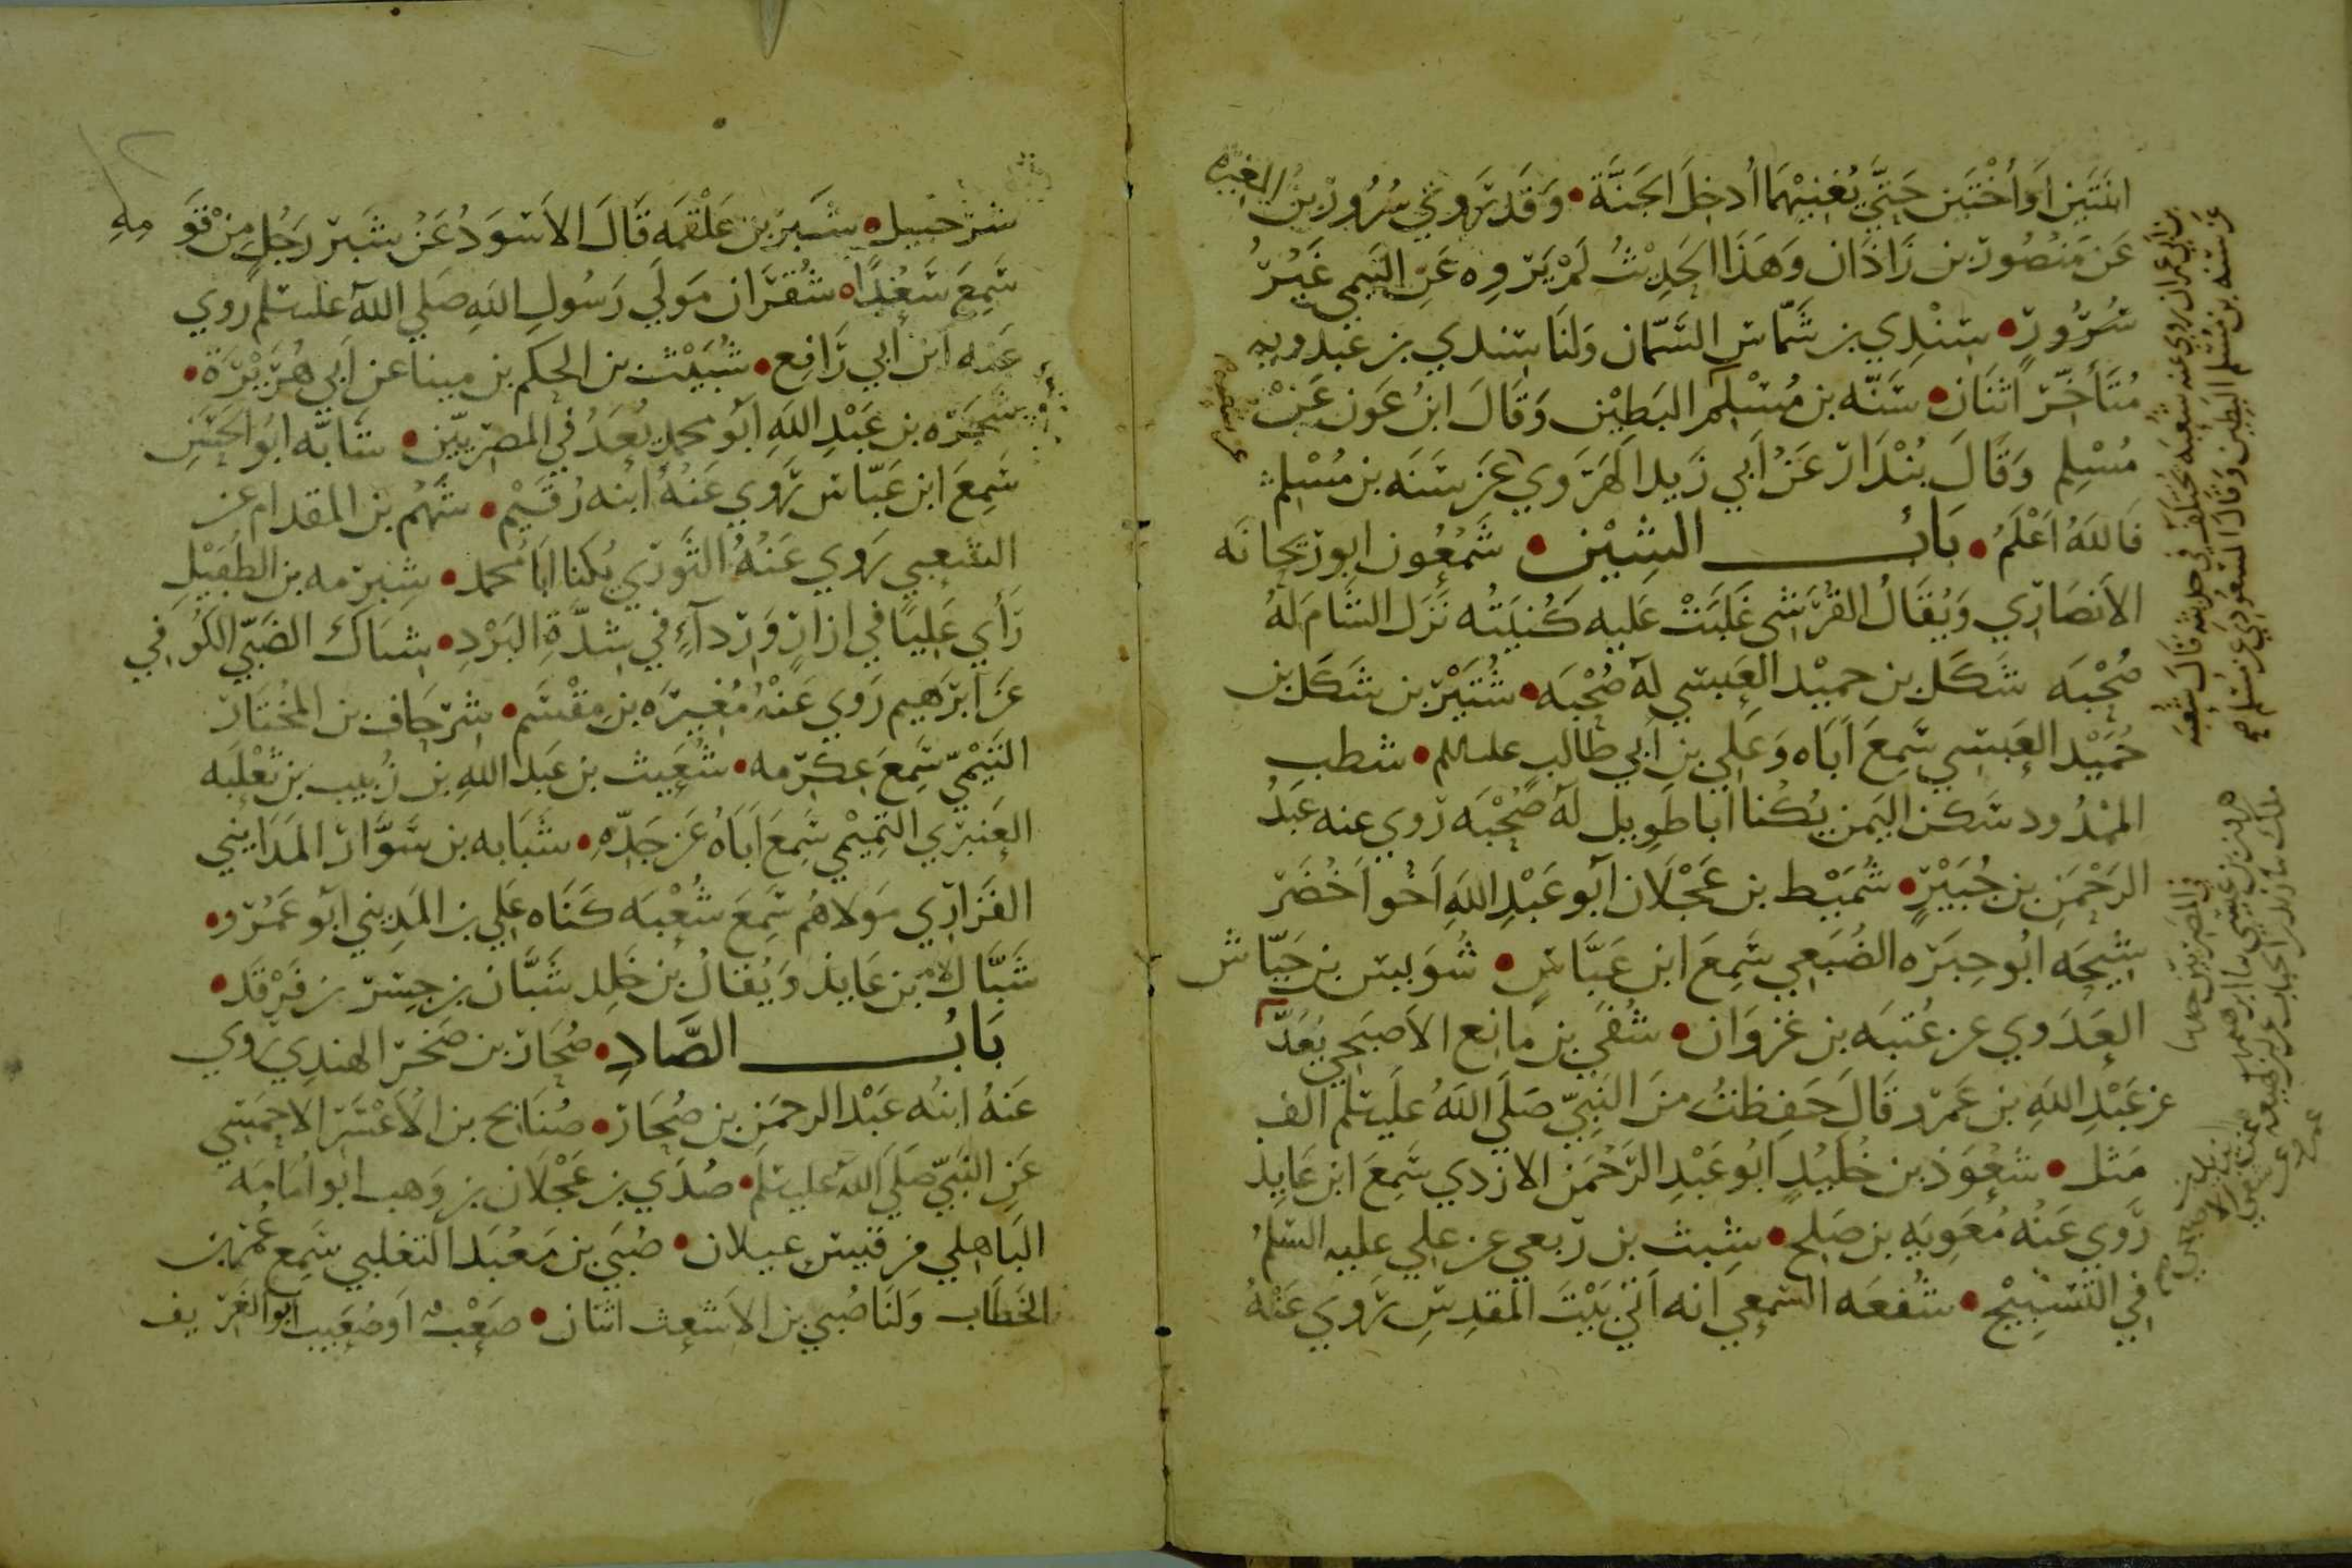 ابنتين او أختين حتي يغنيهما أدخل الجنة • وقد تروي سرور بن المغيره
عن منصور بن زاذان وهذا الحديث لم يروه عن التيمي غير
سرور • سندي بن شماس السمان ولنا سندي بن عبدويه
متأخر اثنان • سنه بن مسلم البطين وقال ابن عون عن
مسلم وقال بندار عن أبي زيد الهروي عن سنه بن مسلم
فالله أعلم • باب الشين • شمعون ابو ريحانه
الأنصاري ويقال القرشي غلبت عليه كنيته نزل الشام له
صحبه شكل بن حميد العبسي له صحبه • شتير بن شكل بن
حميد العبسي سمع أباه وعلي بن أبي طالب • شطب
الممدود سكن اليمن يكنا ابا طويل له صحبه روي عنه عبد
الرحمن بن جبير • شميط بن عجلان أبو عبد الله أخوا أخضر
شيحه ابو حبره الضبعي سمع ابن عباس • شويس بن حياش
العدوي عن عتبه بن غزوان • شفي بن مانع الأصبحي يعد
عن عبد الله بن عمرو قال حفظت من النبي صلي الله عليه سلم ألف
مثل • شعوذ بن خليد أبو عبد الرحمن الازدي سمع ابن عايذ
روي عنه معويه بن صلح • شبث بن ربعي عن علي عليه السلم
في التسبيح • شفعه السمعي انه اتي بيت المقدس روي عنه
شرحبيل • شبر بن علقمه قال الأسود عن شبر رجل من قومه
سمع سعدا • شقران مولي رسول الله صلي الله عليه سلم روي
عنه ابن أبي رافع • شبيث بن الحكم بن مينا عن أبي هريرة •
شجره بن عبد الله أبو محمد يعد في المصريين • شابه ابو
سمع ابن عباس روي عنه أبنه رقيم • شهم بن المقدام عن
الشعبي روي عنه الثوري يكنا ابا محمد • شبرمه بن الطفيل
رأي عليا في ازار ورداء في شدة البرد • شباك الضبي الكوفي
عن ابرهيم روي عنه مغيره بن مقسم • شرحاف بن المختار
التيمي سمع عكرمه • شعيث بن عبد الله بن زبيب بن ثعلبه
العنبري التميمي سمع أباه عن جده • شبابه بن سوار المدايني
الفزاري مولاهم سمع شعبه كناه علي بن المديني أبو عمرو •
شباك بن عايذ ويقال بن خلد شبان بن جسر بن فرقد •
باب الصاد • صحار بن صخر الهندي روي
عنه ابنه عبد الرحمن بن صحار • صنابح بن الأعسر الاحمسي
عن النبي صلي الله عليه سلم • صدي بن عجلان بن وهب ابو امامه
الباهلي من قيس عيلان • صبي بن معبد التغلبي سمع عمر بن
الخطاب ولنا صبي بن الأشعث اثنان • صعب أو صعيب ابو الغريف
عن سنه بن مسلم البطين وقال السعودي عن مسلم